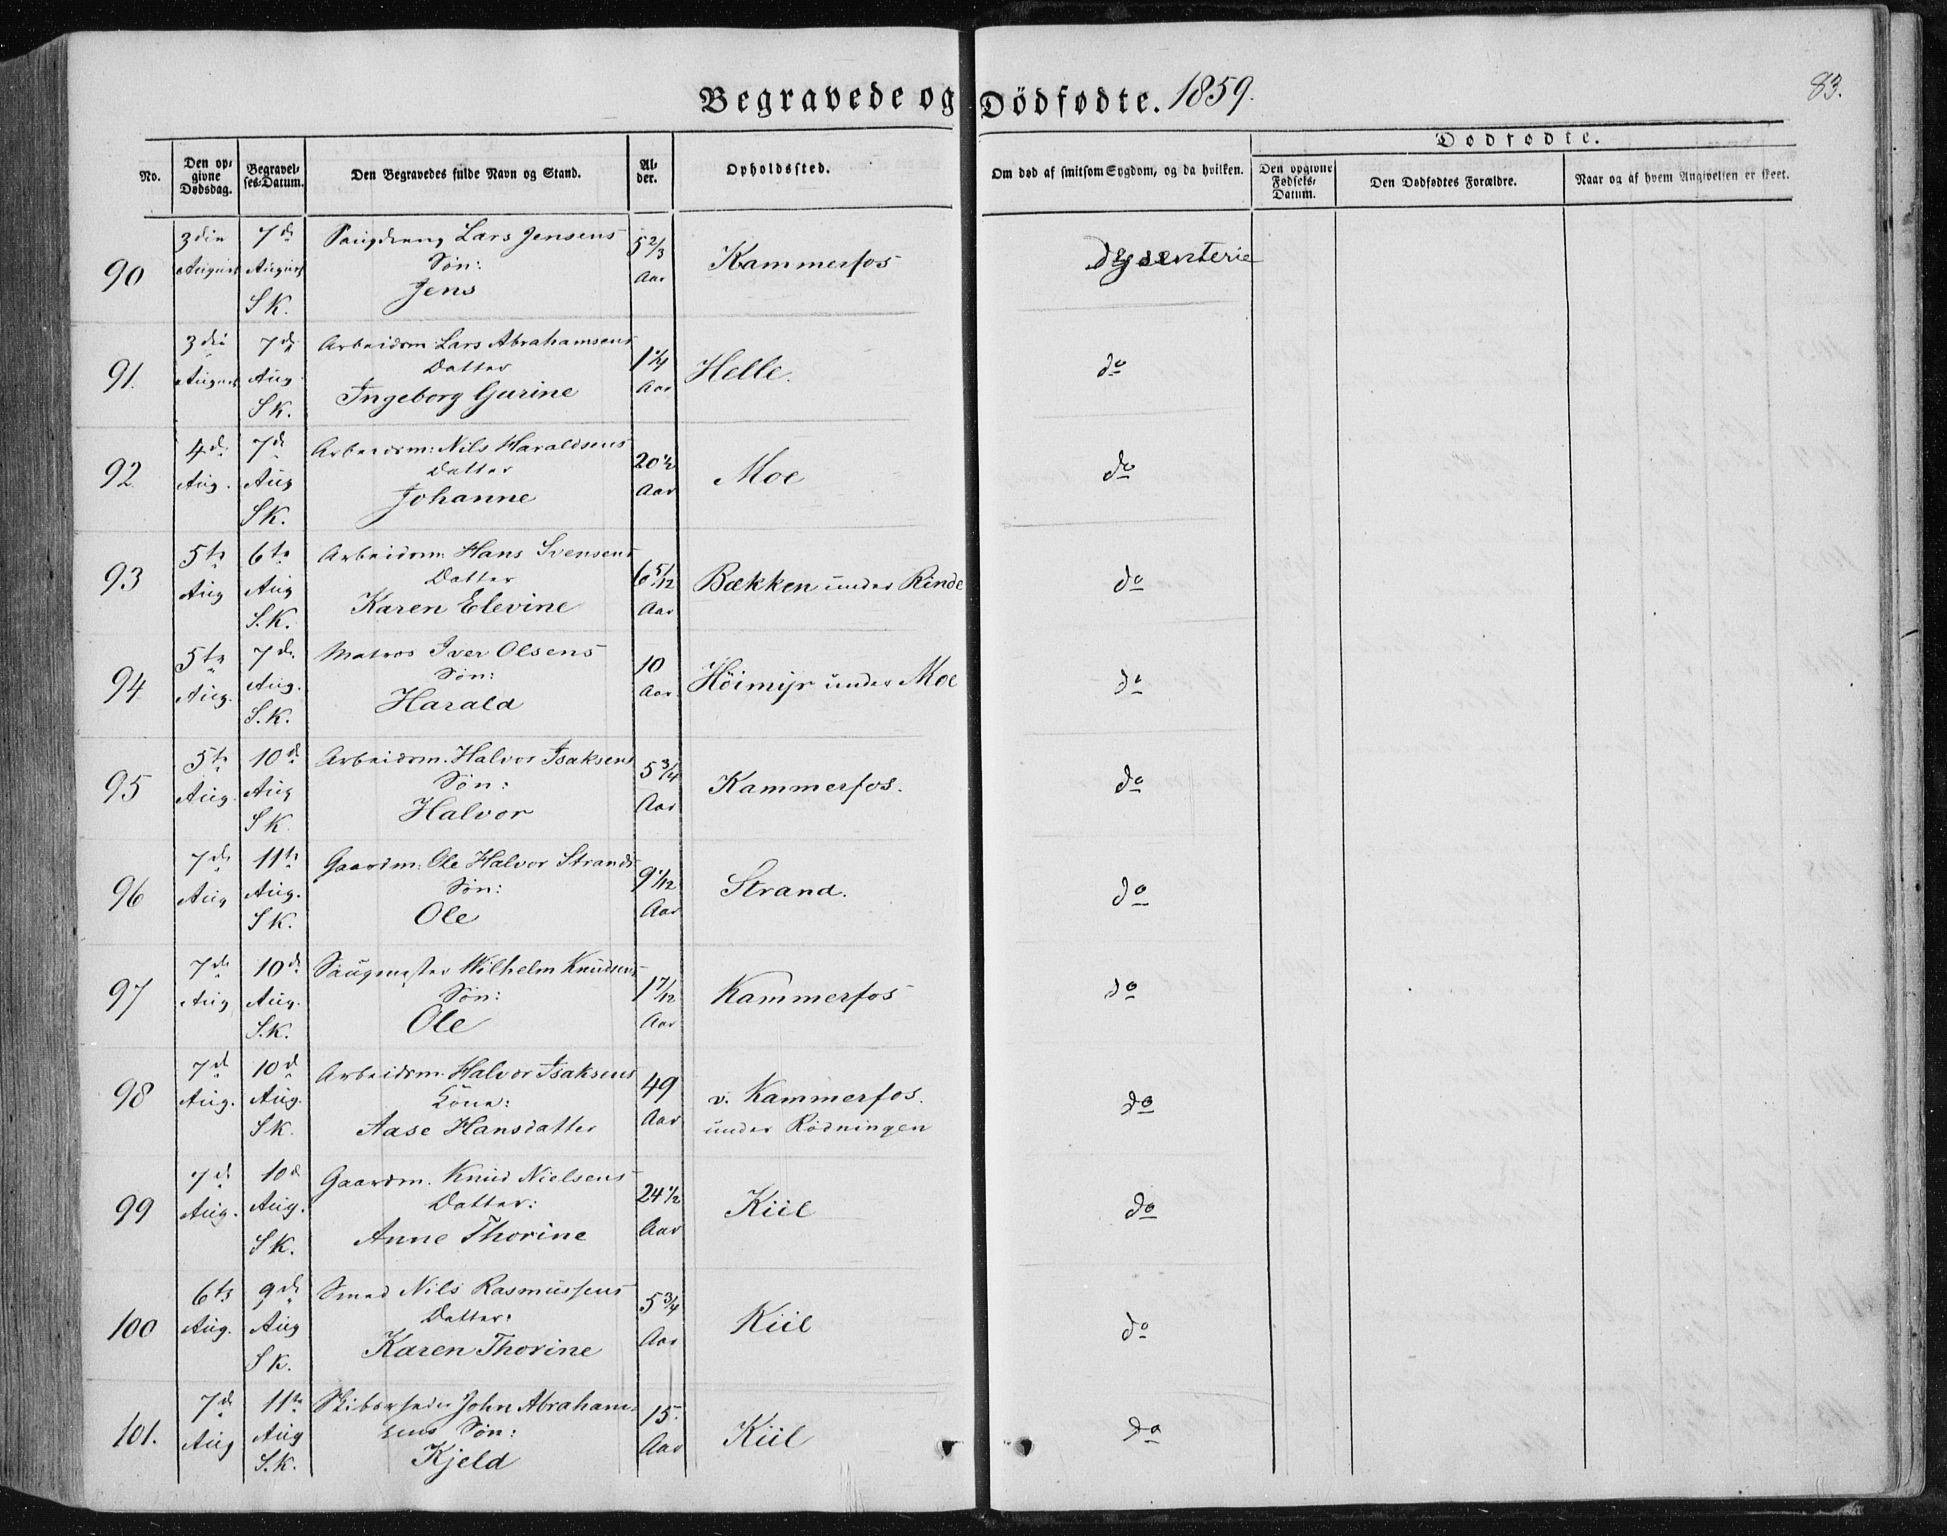 Begravede og Dödfødte. 1859.
83.
Dødfødte.
No.
Den opgivne Dødsdag.
Begravelses-Datum.
Den Begravedes fulde Navn og Stand.
Alder.
Opholdssted.
Om død af smitsom Sygdom, og da hvilken.
Den opgivne Fødsels-Datum.
Den Dødfødtes Forældre.
Naar og af hvem Angivelsen er skeet.
90 3die August 7de August S.K. Lars Jensens Søn: Jens 5 2/3 Aar Kammerfos dysenterie
91. 3die August 7de Aug. S.K. Arbeidsm: Lars Abrahamsens Datter Ingeborg Gurine Aar Helle. do
92 4de Aug. 7de Aug S.K. Arbeidsm: Nils Haraldsens Datter Johanne 20 1/2 Aar Moe do
93 5te Aug 6te Aug S.K. Arbeidsm: Hans Svensens Datter Karen Elevine 6 5/12 Aar Bækken under Rinde do
94 5te Aug. 7de Aug. S.K. Matros Iver Olsens Søn: Harald 10 Aar Höimyr under Moe do
95 5te Aug. 10de Aug S.K. Arbeidsm. Halvor Isaksens Søn: Halvor 5 3/4 Aar Kammerfos. do
96 7de Aug 11te Aug. S.K. Gaardm: Ole Halvor Strands Søn: Ole 9 1/12 Aar Strand. do
97 7de Aug 10de Aug. S.K. Saugmester Wilhelm Knudsens Søn: Ole 1 7/12 Aar Kammerfos do
98 7de Aug. 10de Aug. S.K. Arbeidsm. Halvor Isaksens Kone: Aase Hansdatter 49 Aar v. Kammerfos. under Rödningen do
99 7de Aug. 10de Aug. S.K. Gaardm. Knud Nielsens Datter: Anne Thorine 24 1/2 Aar Kiil do
100 6te Aug. 9de Aug S.K. Smed Nils Rasmussens Datter: Karen Thorine 5 3/4 Aar Kiil do
101. 7de Aug 11te Aug S.K. John Abrahamsens Søn: Kjeld 15. Aar Kiil do